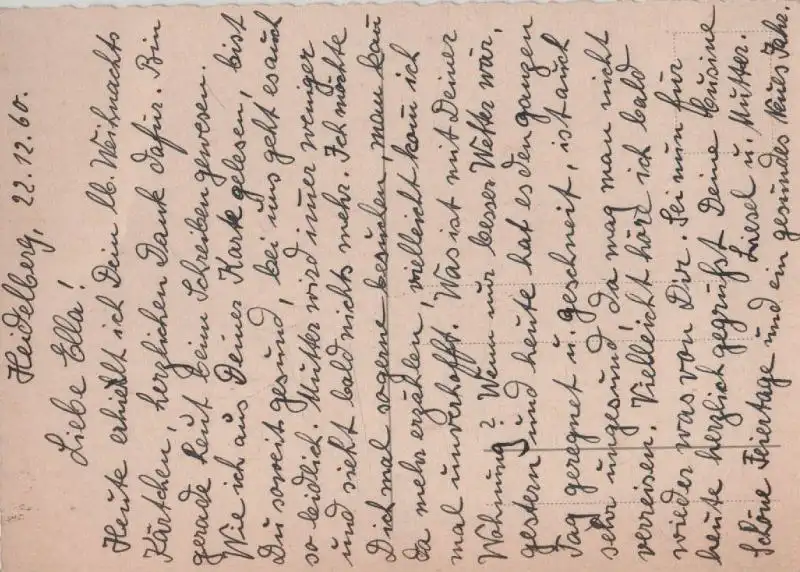 Heidelberg, 22.12.60.
Liebe Ella!
Heute erhielt ich Dein lb. Weihnachts
Kärtchen, herzlichen Dank dafür. Bin
gerade heut beim Schreiben gewesen.
Wie ich aus Deiner Karte gelesen, bist
Du soweit gesund, bei uns geht es auch
so leidlich. Mutter wird imer weniger
und sieht bald nichts mehr. Ich möchte
Dich mal so gerne besuchen, man kan
da mehr erzählen, vielleicht kom ich
mal unverhofft. Was ist mit Deiner
Wohnung? Wenn nur besser Wetter wär,
gestern und heute hat es den ganzen
Tag geregnet u. geschneit, ist auch
sehr ungesund, da mag man nicht
verreisen. Vielleicht höre ich bald
wieder was von Dir. Sei nun für
heute herzlich gegrüßt Deine Kusine
Liesel u. Mutter.
Schöne Feiertage und ein gesundes Neues Jahr.